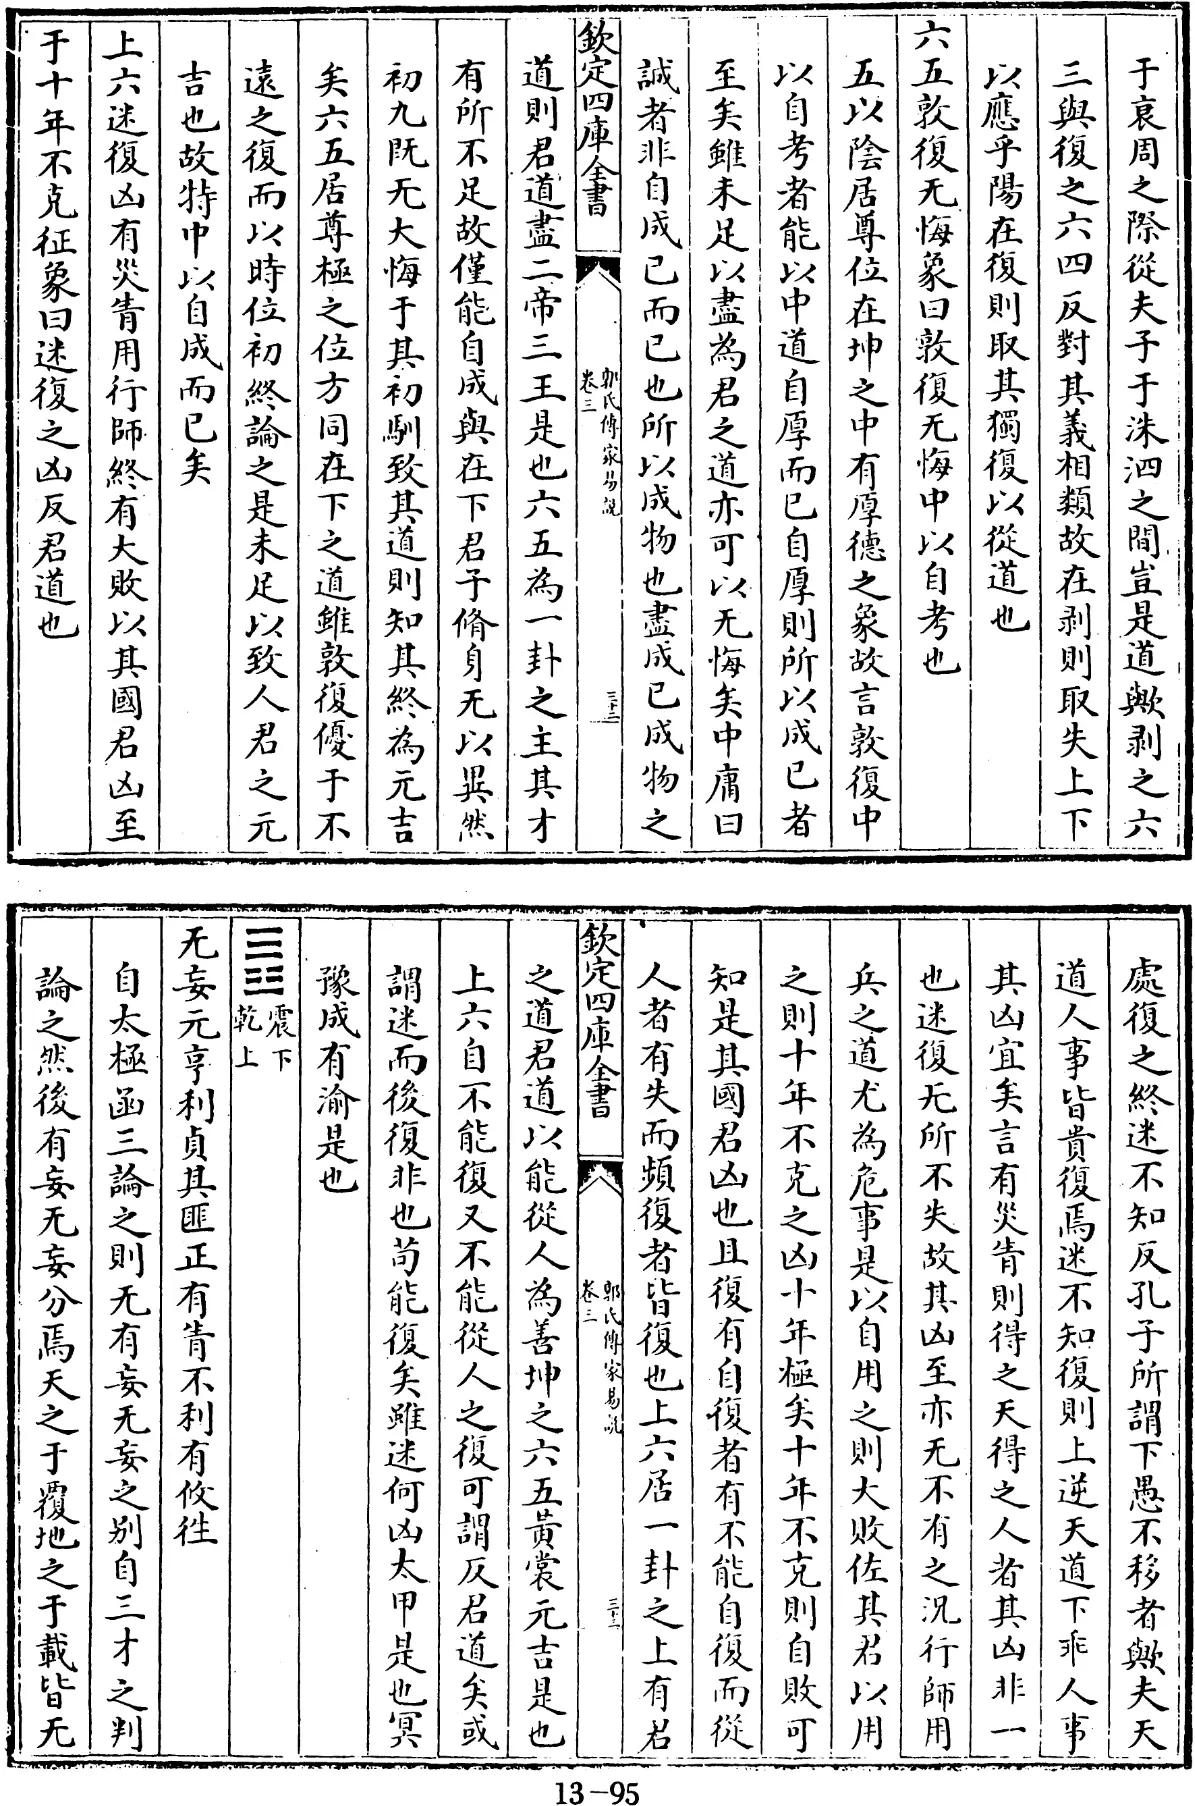 于衰周之際從夫子于洙泗之間豈是道歟剥之六
三與復之六四反對其義相類故在剥則取失上下
以應乎陽在復則取其獨復以從道也
六五敦復无悔象曰敦復无悔中以自考也
五以陰居尊位在坤之中有厚德之象故言敦復中
以自考者能以中道自厚而已自厚則所以成已者
至矣雖未足以盡為君之道亦可以无悔矣中庸曰
誠者非自成已而已也所以成物也盡成已成物之
欽定四庫全書
郭氏傳家易說
卷三
三十二
道則君道盡二帝三王是也六五為一卦之主其才
有所不足故僅能自成與在下君子脩身无以異然
初九既无大悔于其初馴致其道則知其終為元吉
矣六五居尊極之位方同在下之道雖敦復優于不
遠之復而以時位初終論之是未足以致人君之元
吉也故特中以自成而已矣
上六迷復凶有災眚用行師終有大敗以其國君凶至
于十年不克征象曰迷復之凶反君道也
處復之終迷不知反孔子所謂下愚不移者歟夫天
道人事皆貴復焉迷不知復則上逆天道下乖人事
其凶宜矣言有災眚則得之天得之人者其凶非一
也迷復无所不失故其凶至亦无不有之況行師用
兵之道尤為危事是以自用之則大敗佐其君以用
之則十年不克之凶十年極矣十年不克則自敗可
知是其國君凶也且復有自復者有不能自復而從
人者有失而頻復者皆復也上六居一卦之上有君
欽定四庫全書
郭氏傳家易說
卷三
三十三
之道君道以能從人為善坤之六五黄裳元吉是也
上六自不能復又不能從人之復可謂反君道矣或
謂迷而後復非也苟能復矣雖迷何凶太甲是也冥
豫成有渝是也
震下
乾上
无妄元亨利貞其匪正有眚不利有攸往
自太極函三論之則无有妄无妄之别自三才之判
論之然後有妄无妄分焉天之于覆地之于載皆无
13-95